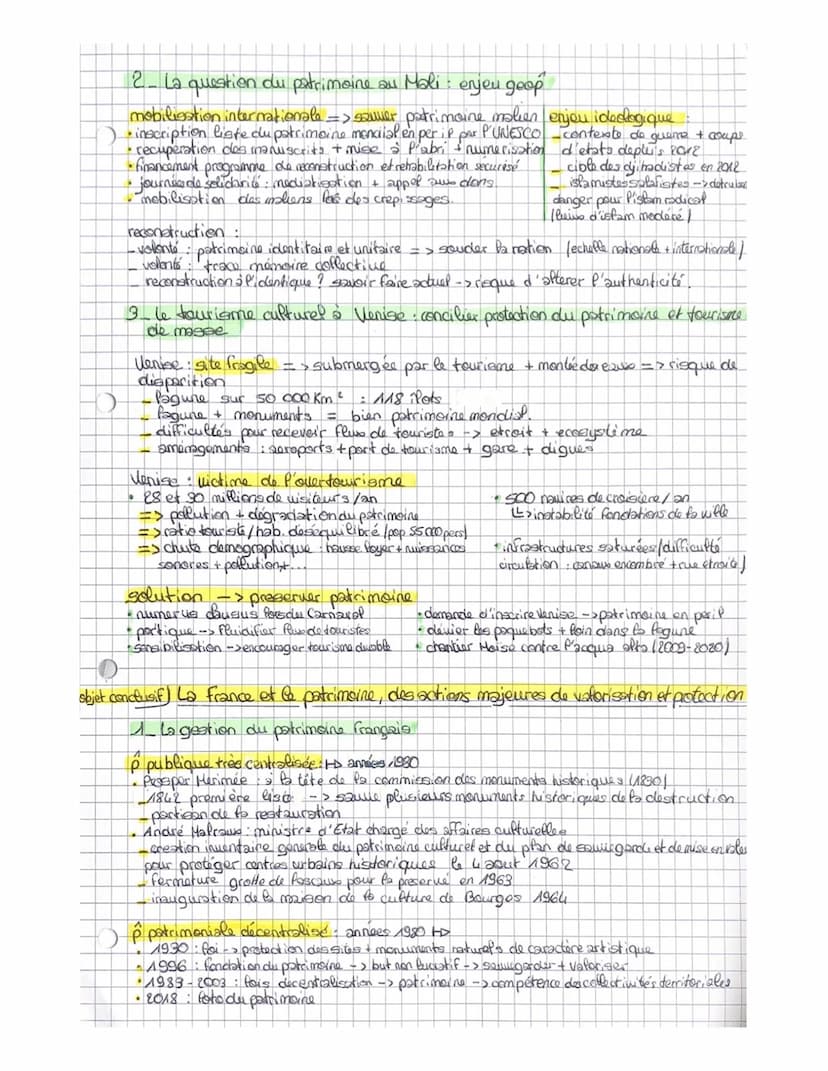 2_ La question du patrimoine au Mali : enjeu geop°
mobilisation internationale => sauver patrimoine malien
• inscription liste du patrimoine mondial en peril par l'UNESCO
• recuperation des manuscrits + mise à l'abri + numerisation
• financement programme de reconstruction et rehabilitation securisé
• journée de solidarité : mediatisation + appel aux dons.
• mobilisation des maliens lors des crepissages.
enjeu ideologique :
_ contexte de guerre + coups
d'etats depuis 2012
_ cible des djihadistes en 2012
_ islamistes salafistes -> detruise
danger pour l'islam radical
(lieux d'islam modéré)
reconstruction :
_ volonté : patrimoine identitaire et unitaire => souder la nation (echelle nationale + internationale)
_ volonté : trace mémoire collective
_ reconstruction à l'identique ? savoir faire actuel -> risque d'alterer l'authenticité.
3_ Le tourisme culturel à Venise : concilier protection du patrimoine et tourisme
de masse
Venise : site fragile => submergée par le tourisme + montée des eaux => risque de
disparition
_ lagune sur 50 000 Km² : 118 îlots
_ lagune + monuments = bien patrimoine mondial.
_ difficultés pour recevoir flux de touristes -> etroit + ecosystème
_ aménagements : aeroports + port de tourisme + gare + digues
Venise : victime de l'overtourisme
• 28 et 30 millions de visiteurs/an
=> pollution + dégradation du patrimoine
=> ratio touriste/hab. deséquilibré (pop 55 000 pers)
=> chute demographique : hausse loyer + nuissances
sonores + pollution + ...
• 500 navires de croisière/an
↳ instabilité fondations de la ville
• infrastructures saturées (difficulté
circulation : canaux encombré + rue étroite)
solution -> preserver patrimoine
• numerus clausus lors du Carnaval
• portique -> fluidifier flux de touristes
• sensibilisation -> encourager tourisme durable
• demande d'inscrire Venise -> patrimoine en peril
• devier les paquebots + loin dans la lagune
• chantier Moise contre l'acqua alta (2003-2020)
objet conclusif) La France et le patrimoine, des actions majeures de valorisation et protection
1_ La gestion du patrimoine français
p° publique très centralisée : |-> années 1980
• Prosper Merimée : à la tête de la commission des monuments historiques (1830)
_ 1842 première liste -> sauve plusieurs monuments historiques de la destruction
_ partisan de la restauration
• André Malraux : ministre d'Etat chargé des affaires culturelles
_ creation inventaire generale du patrimoine culturel et du plan de sauvegarde et de mise en valeur
pour protéger centres urbains historiques le 4 aout 1962
_ fermeture grotte de lascaux pour la preservé en 1963
_ inauguration de la maison de la culture de Bourges 1964
p° patrimoniale décentralisé : années 1980 |->
• 1930 : loi -> protection des sites + monuments naturels de caractère artistique
• 1996 : fondation du patrimoine -> but non lucratif -> sauvegarder + valoriser
• 1983 - 2003 : lois decentralisation -> patrimoine -> compétence des collectivités territoriales
• 2018 : loto du patrimoine